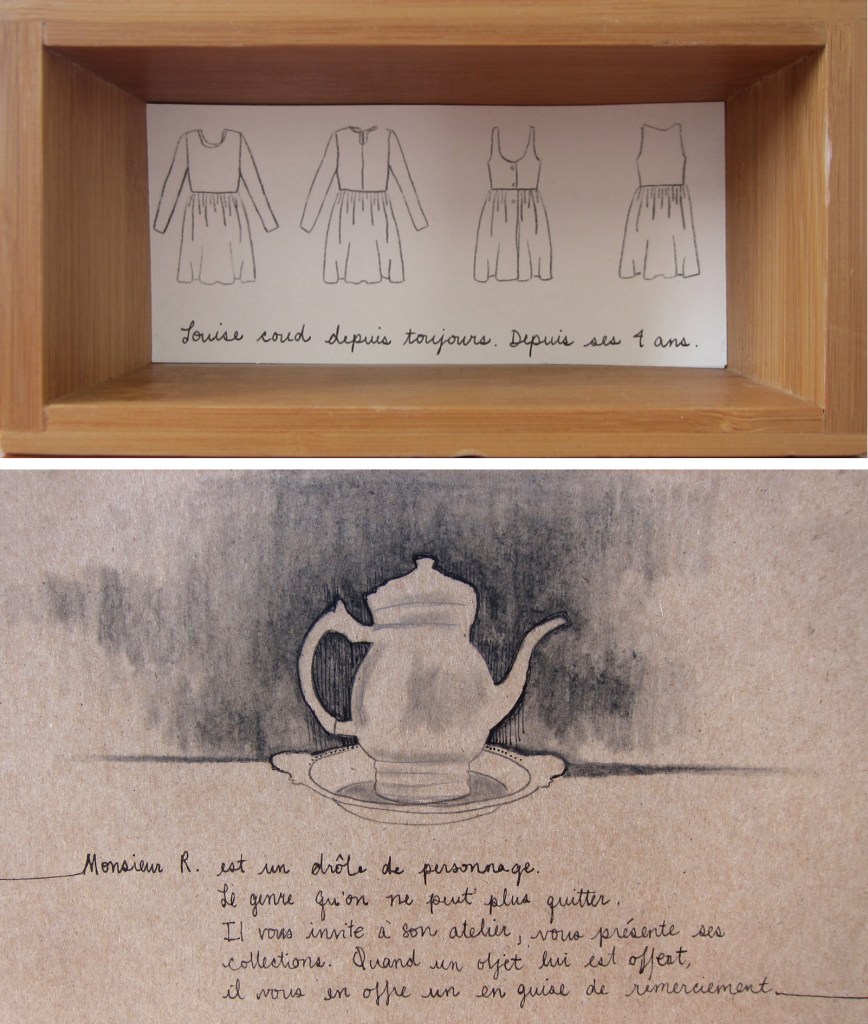 Louise coud depuis toujours. Depuis ses 4 ans.
Monsieur R. est un drôle de personnage.
Le genre qu'on ne peut plus quitter.
Il vous invite à son atelier, vous présente ses
collections. Quand un objet lui est offert,
il vous en offre un en guise de remerciement.